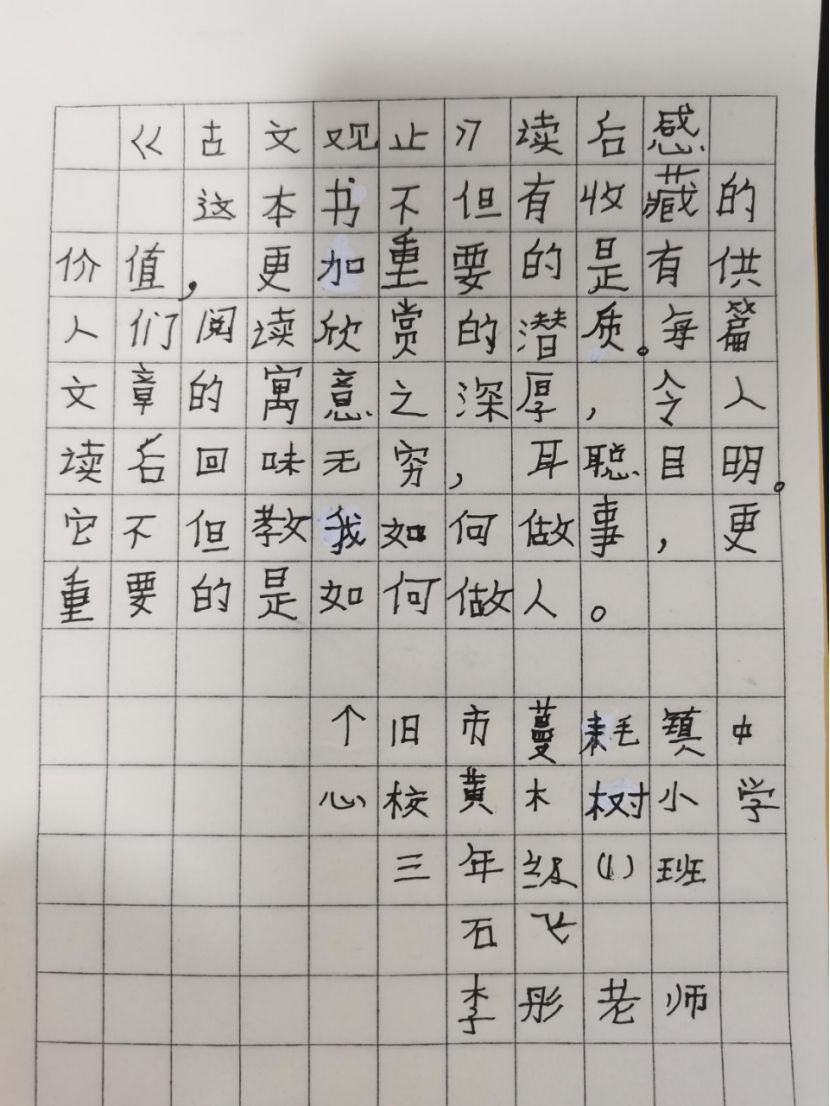 《古文观止》读后感
这本书不但有收藏的
价值，更加重要的是有供
人们阅读欣赏的潜质。每篇
文章的寓意之深厚，令人
读后回味无穷，耳聪目明。
它不但教我如何做事，更
重要的是如何做人。
个旧市蔓耗镇中
心校黄木树小学
三年级(1)班
石飞
李彤老师